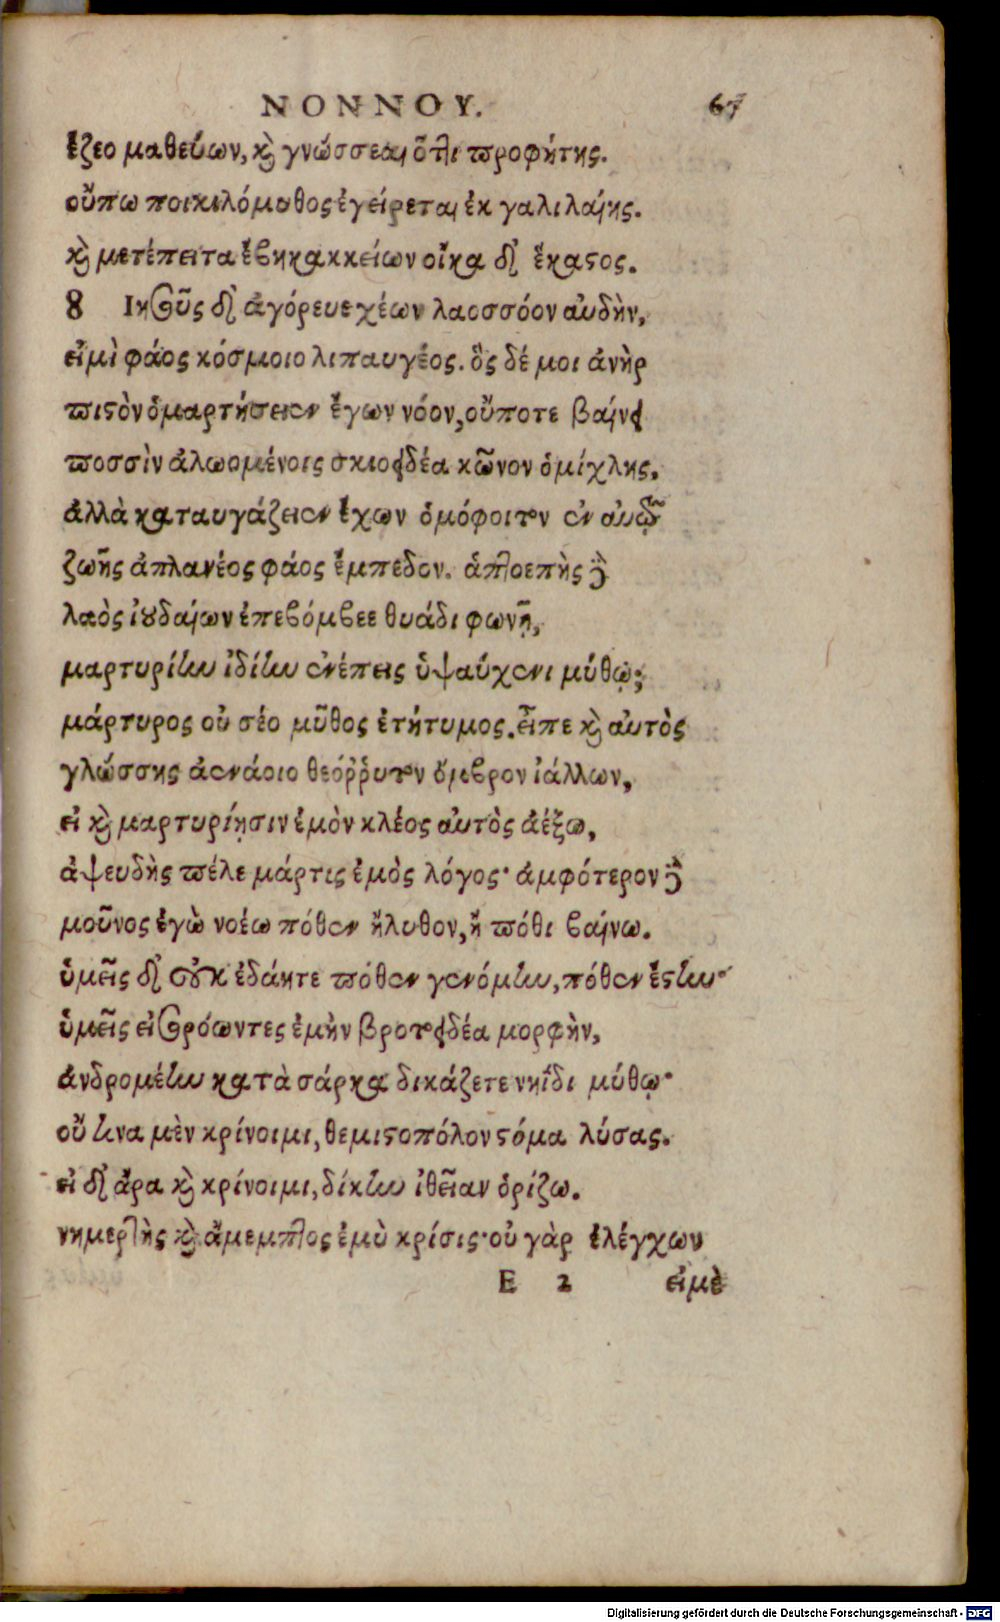 ΝΟΝΝΟΥ. 67
ἕζεο μαθεύων, καὶ γνώσσεαι ὅτι προφήτης.
οὔπω ποικιλόμυθος ἐγείρεται ἐκ γαλιλαίης.
καὶ μετέπειτα ἔβη κακκείων οἶκα δὲ ἕκαστος.
8 Ιησοῦς δ' ἀγόρευε χέων λαοσσόον αὐδὴν,
εἰμὶ φάος κόσμοιο λιπαυγέος. ὃς δέ μοι ἀνὴρ
πιστὸν ὁμαρτήσειεν ἔγων νόον, οὔποτε βαίνει
ποσσὶν ἀλωομένοις σκιοειδέα κῶνον ὁμίχλης,
ἀλλὰ καταυγάζειεν ἔχων ὁμόφοιτον ἐν αὐτῷ
ζωῆς ἀπλανέος φάος ἔμπεδον. ἀπτοεπὴς δὲ
λαὸς ἰουδαίων ἐπεβόμβεε θυάδι φωνῇ,
μαρτυρίην ἰδίην ἐνέπεις ὑψαύχενι μύθῳ;
μάρτυρος οὐ σέο μῦθος ἐτήτυμος. εἶπε καὶ αὐτὸς
γλώσσης ἀενάοιο θεόῤῥυτον ὄμβρον ἰάλλων,
εἰ καὶ μαρτυρίῃσιν ἐμὸν κλέος αὐτὸς ἀέξω,
ἀψευδὴς πέλε μάρτις ἐμὸς λόγος· ἀμφότερον δὲ
μοῦνος ἐγὼ νοέω πόθεν ἤλυθον, ἢ πόθι βαίνω.
ὑμεῖς δ' οὐκ ἐδάητε πόθεν γενόμην, πόθεν ἔστην·
ὑμεῖς εἰσορόωντες ἐμὴν βροτοειδέα μορφὴν,
ἀνδρομέην κατὰ σάρκα δικάζετε νηΐδι μύθῳ·
οὔ τινα μὲν κρίνοιμι, θεμιστοπόλον στόμα λύσας.
εἰ δ' ἄρα καὶ κρίνοιμι, δίκην ἰθεῖαν ὁρίζω.
νημερτὴς καὶ ἄμεμπτος ἐμὺ κρίσις· οὐ γὰρ ἐλέγχων
E 2 εἰμὲ
Digitalisierung gefördert durch die Deutsche Forschungsgemeinschaft - DFG